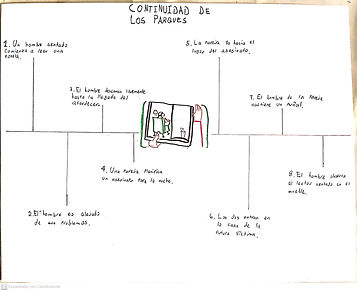 CONTINUIDAD DE
LOS PARQUES
1. Un hombre sentado
comienza a leer una
novela.
3. El hombre
hasta la llegada del
atardecer.
4. Una pareja planifica
un asesinato para la noche.
2. El hombre es alejado
de sus problemas.
5. La pareja va hacia el
lugar del asesinato.
7. El hombre de la pareja
sostiene un puñal.
6. Los dos entran en
la casa de la
futura víctima.
8. El hombre
al lector sentado en el
Escaneado con CamScanner